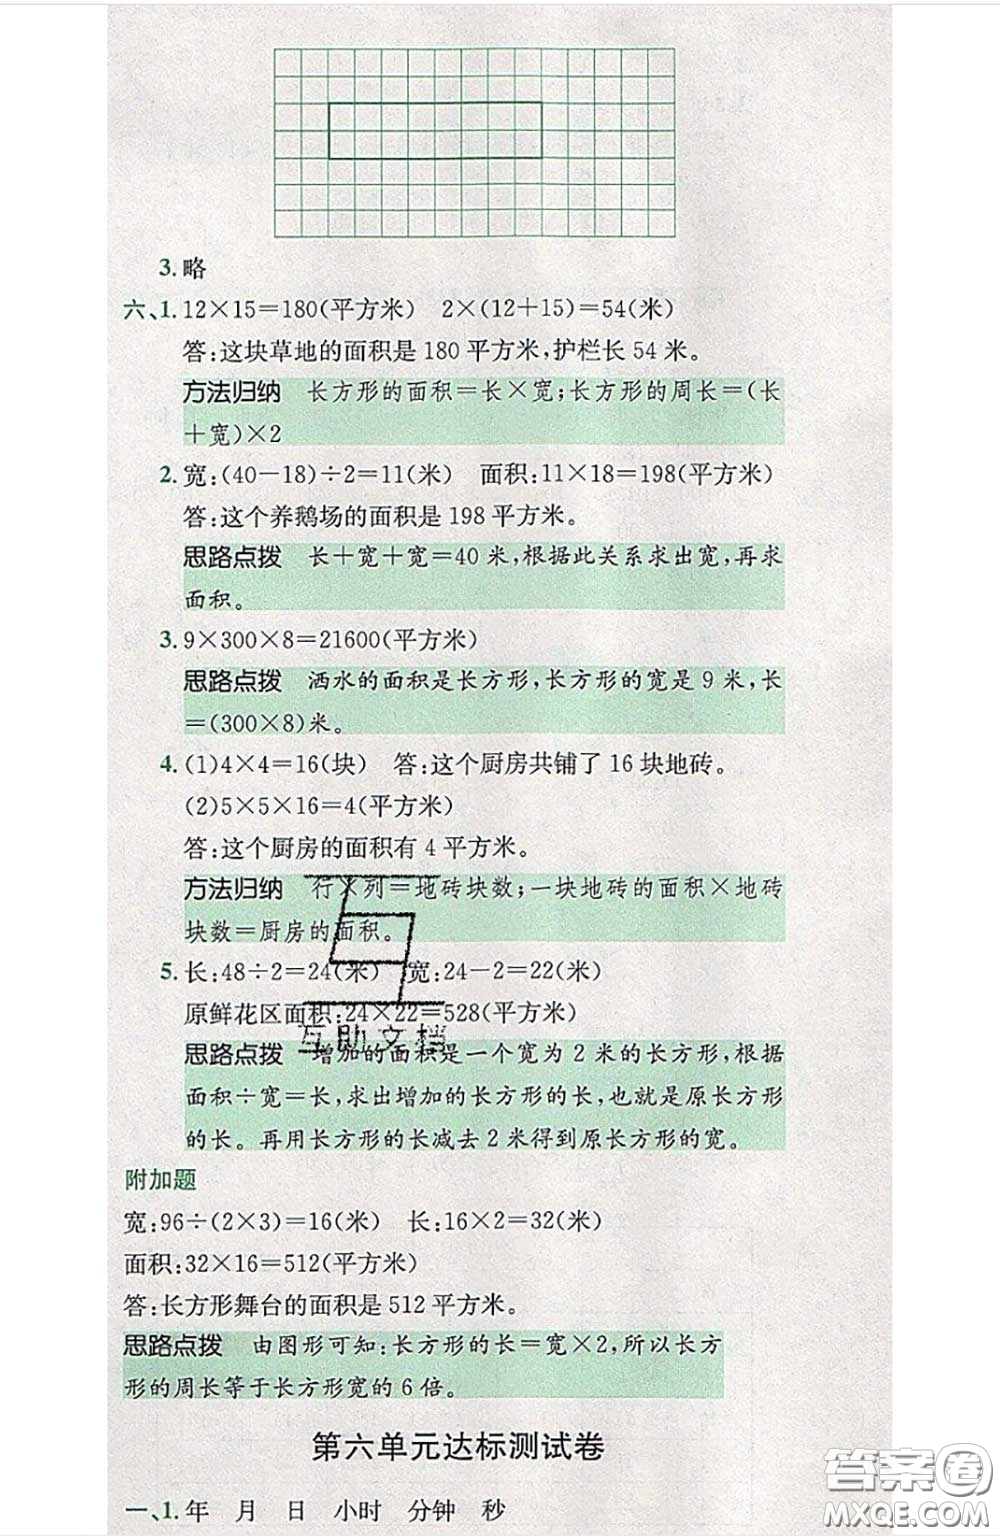 3. 略
六、1. 12×15=180(平方米)　2×(12+15)=54(米)
答:这块草地的面积是180平方米,护栏长54米。
方法归纳　长方形的面积=长×宽;长方形的周长=(长
+宽)×2
2. 宽:(40-18)÷2=11(米)　面积:11×18=198(平方米)
答:这个养鹅场的面积是198平方米。
思路点拨　长+宽+宽=40米,根据此关系求出宽,再求
面积。
3. 9×300×8=21600(平方米)
思路点拨　洒水的面积是长方形,长方形的宽是9米,长
=(300×8)米。
4. (1)4×4=16(块)　答:这个厨房共铺了16块地砖。
(2)5×5×16=4(平方米)
答:这个厨房的面积有4平方米。
方法归纳　行×列=地砖块数;一块地砖的面积×地砖
块数=厨房的面积。
5. 长:48÷2=24(米)　宽:24-2=22(米)
原鲜花区面积:24×22=528(平方米)
互助文档
思路点拨　增加的面积是一个宽为2米的长方形,根据
面积÷宽=长,求出增加的长方形的长,也就是原长方形
的长。再用长方形的长减去2米得到原长方形的宽。
附加题
宽:96÷(2×3)=16(米)　长:16×2=32(米)
面积:32×16=512(平方米)
答:长方形舞台的面积是512平方米。
思路点拨　由图形可知:长方形的长=宽×2,所以长方
形的周长等于长方形宽的6倍。
第六单元达标测试卷
一、1. 年　月　日　小时　分钟　秒
答案圈
MXQE.COM